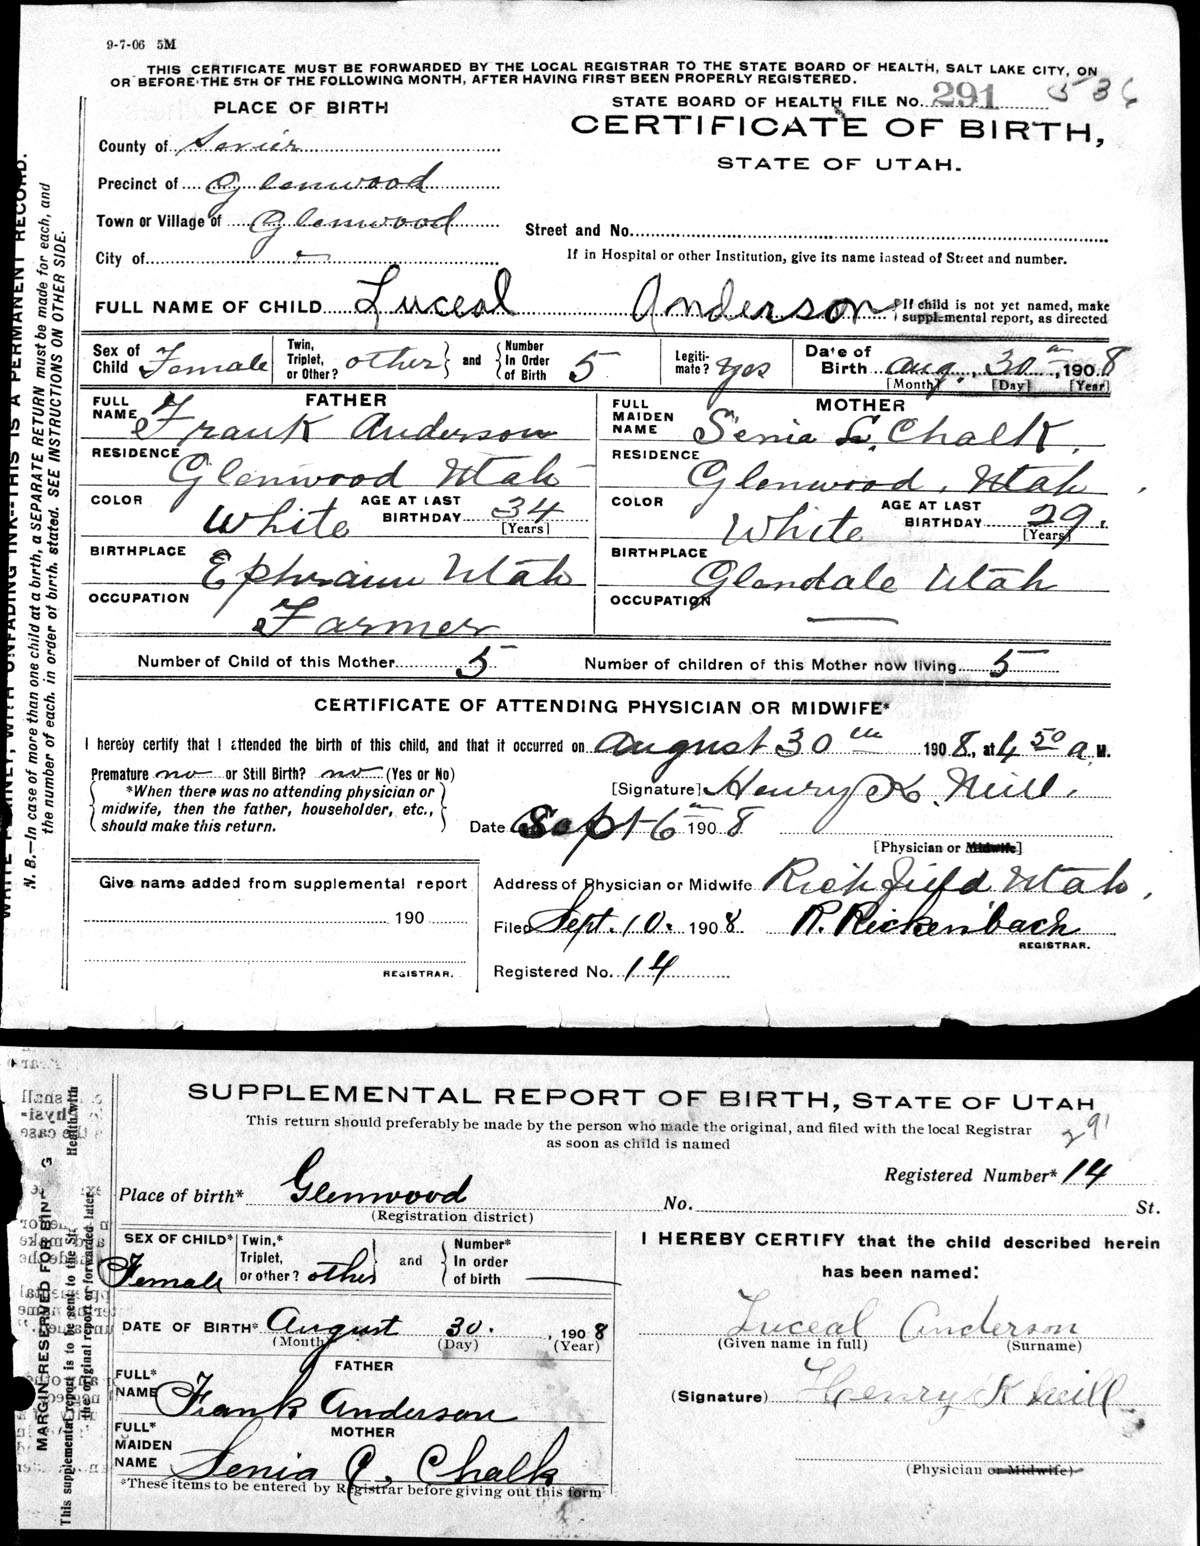 9-7-06 5M
THIS CERTIFICATE MUST BE FORWARDED BY THE LOCAL REGISTRAR TO THE STATE BOARD OF HEALTH, SALT LAKE CITY, ON
OR BEFORE THE 5TH OF THE FOLLOWING MONTH, AFTER HAVING FIRST BEEN PROPERLY REGISTERED.
PLACE OF BIRTH
STATE BOARD OF HEALTH FILE No. 291 536
CERTIFICATE OF BIRTH,
STATE OF UTAH.
County of Sevier
Precinct of Glenwood
Town or Village of Glenwood
Street and No.
City of
If in Hospital or other Institution, give its name instead of Street and number.
FULL NAME OF CHILD Luceal Anderson
If child is not yet named, make
supplemental report, as directed
Sex of Child Female
Twin, Triplet, or Other? other and Number In Order of Birth 5
Legiti-mate? Yes
Date of Birth Aug. 30 th, 1908
[Month] [Day] [Year]
FATHER
FULL NAME Frank Anderson
RESIDENCE Glenwood Utah
COLOR White
AGE AT LAST BIRTHDAY 34
[Years]
BIRTHPLACE Ephraim Utah
OCCUPATION Farmer
MOTHER
FULL MAIDEN NAME Senia C. Chalk.
RESIDENCE Glenwood, Utah
COLOR White
AGE AT LAST BIRTHDAY 29.
[Years]
BIRTHPLACE Glendale Utah
OCCUPATION
Number of Child of this Mother 5 Number of children of this Mother now living 5
CERTIFICATE OF ATTENDING PHYSICIAN OR MIDWIFE*
I hereby certify that I attended the birth of this child, and that it occurred on August 30 th 1908, at 4 50 a. M.
Premature no or Still Birth? no (Yes or No)
*When there was no attending physician or
midwife, then the father, householder, etc.,
should make this return.
[Signature] Henry K. Neill.
Date Sept 6 th 1908
[Physician or Midwife]
Give name added from supplemental report
190
REGISTRAR.
Address of Physician or Midwife Richfield Utah,
Filed Sept. 10. 1908. R. Rickenbach
REGISTRAR.
Registered No. 14
WITH UNFADING INK--THIS IS A PERMANENT RECORD.
N. B.—In case of more than one child at a birth, a SEPARATE RETURN must be made for each, and
the number of each, in order of birth, stated. SEE INSTRUCTIONS ON OTHER SIDE.
SUPPLEMENTAL REPORT OF BIRTH, STATE OF UTAH
This return should preferably be made by the person who made the original, and filed with the local Registrar
as soon as child is named
291
Registered Number* 14
Place of birth* Glenwood No. St.
(Registration district)
SEX OF CHILD* Female
Twin,* Triplet, or other? other and Number* In order of birth
DATE OF BIRTH* August 30. , 1908
(Month) (Day) (Year)
FATHER
FULL* NAME Frank Anderson
MOTHER
FULL* MAIDEN NAME Senia C. Chalk
*These items to be entered by Registrar before giving out this form
I HEREBY CERTIFY that the child described herein
has been named:
Luceal Anderson
(Given name in full) (Surname)
(Signature) Henry K Neill
(Physician or Midwife)
MARGIN RESERVED FOR BIN G
This supplemental report is to be sent to the St Health with
the original report or forwarded later.